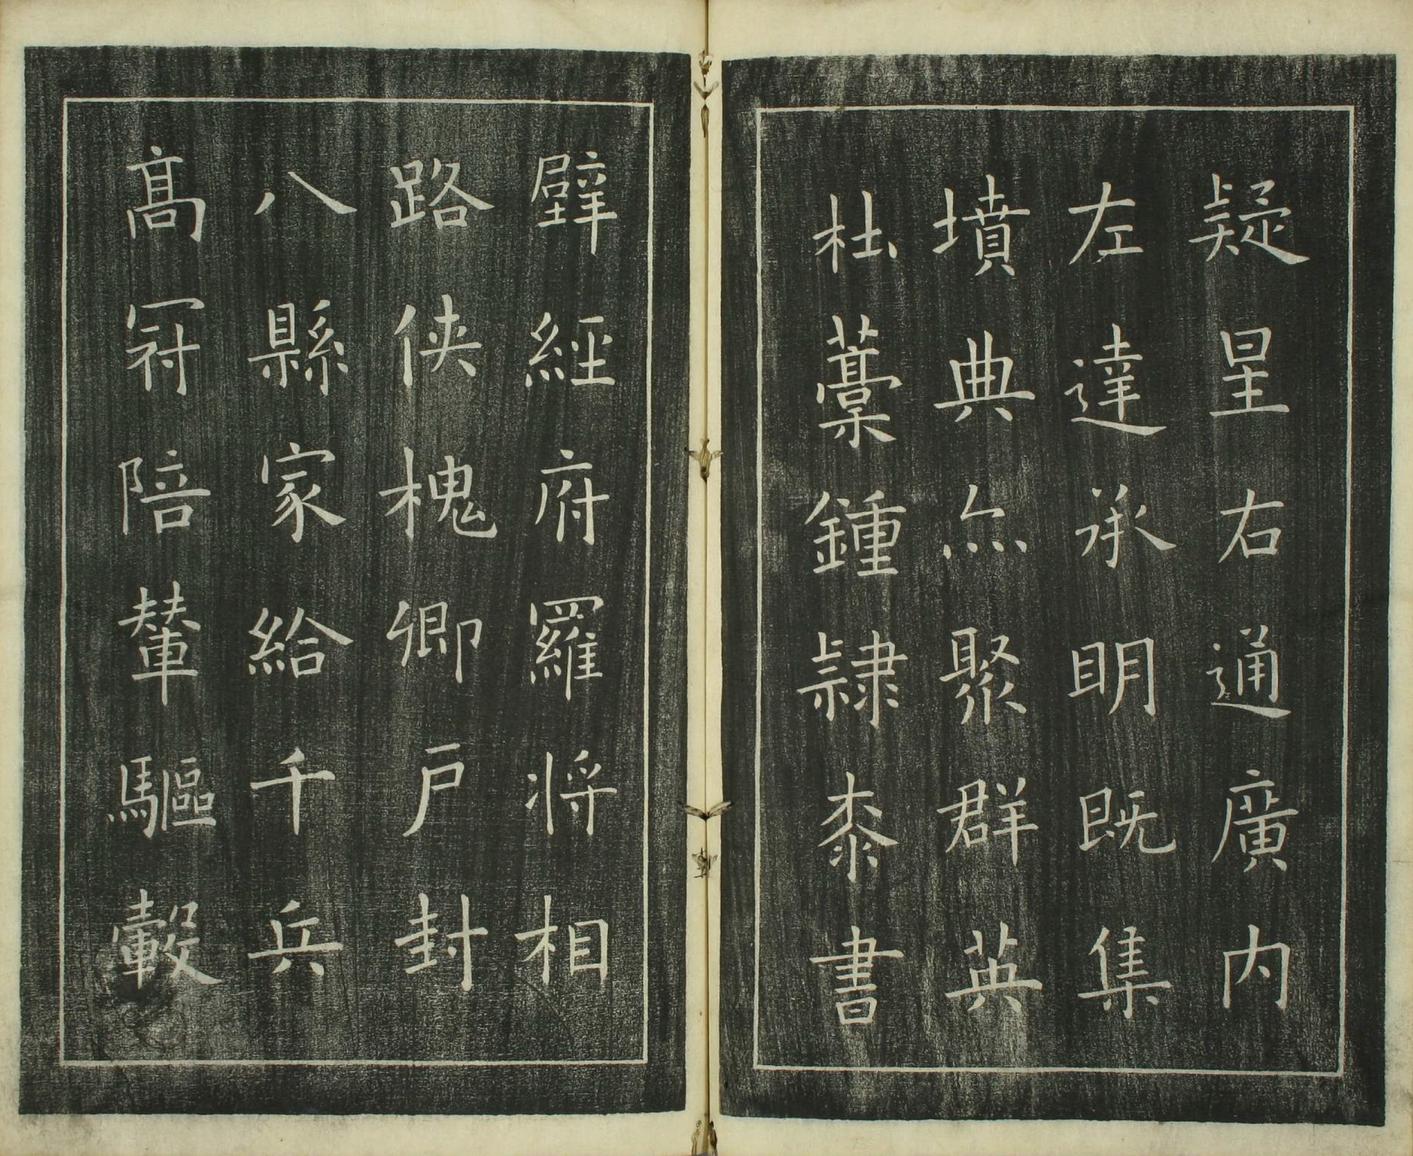 疑星右通廣内
左達承明既集
墳典亦聚群英
杜藁鍾隸桼書
壁經府羅將相
路俠槐卿戸封
八縣家給千兵
高冠陪輦驅轂